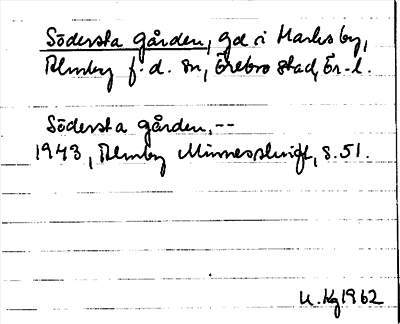 Södersta gården, gd i Marksby,
Almby f.d. sn, Örebro stad, Ör-l.
Södersta gården, --
1943, Almby Minnesskrift, s. 51.
U.Kg 1962